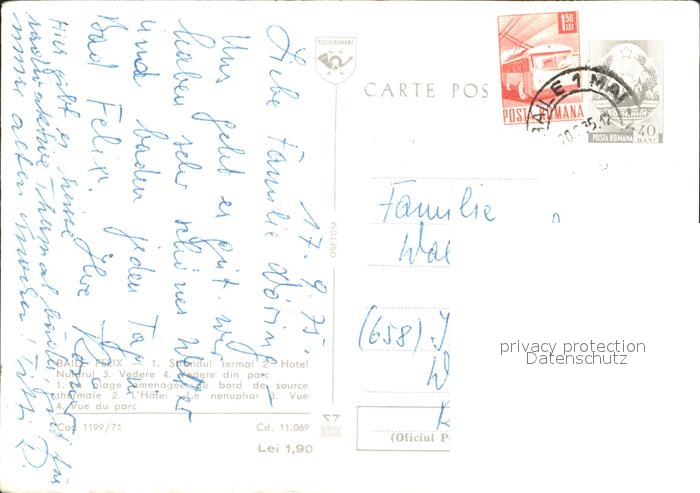 17.9.75.
Liebe Familie Döring
Uns geht es gut. wir
haben sehr schönes Wetter
und baden jeden Tag in
Bad Felix.
Ihre
Hier gibt es heiße
radioaktive Thermalbäder, gut für
POSTA ROMANA
CARTE POS
1,50
LEI
POSTA ROMANA
BAILE 1 MAI
POSTA ROMANA
40
BANI
Familie
(658)
privacy protection
Datenschutz
OSETCM
BAILE FELIX — 1. Ștrandul termal 2. Hotel
Nufărul 3. Vedere 4. Vedere din parc
1. La plage aménagée au bord de source
thermale 2. L'Hôtel Le nenuphar 3. Vue
4. Vue du parc
Cod 1199/74
Cd. 11.069
Lei 1,90
(Oficiul P